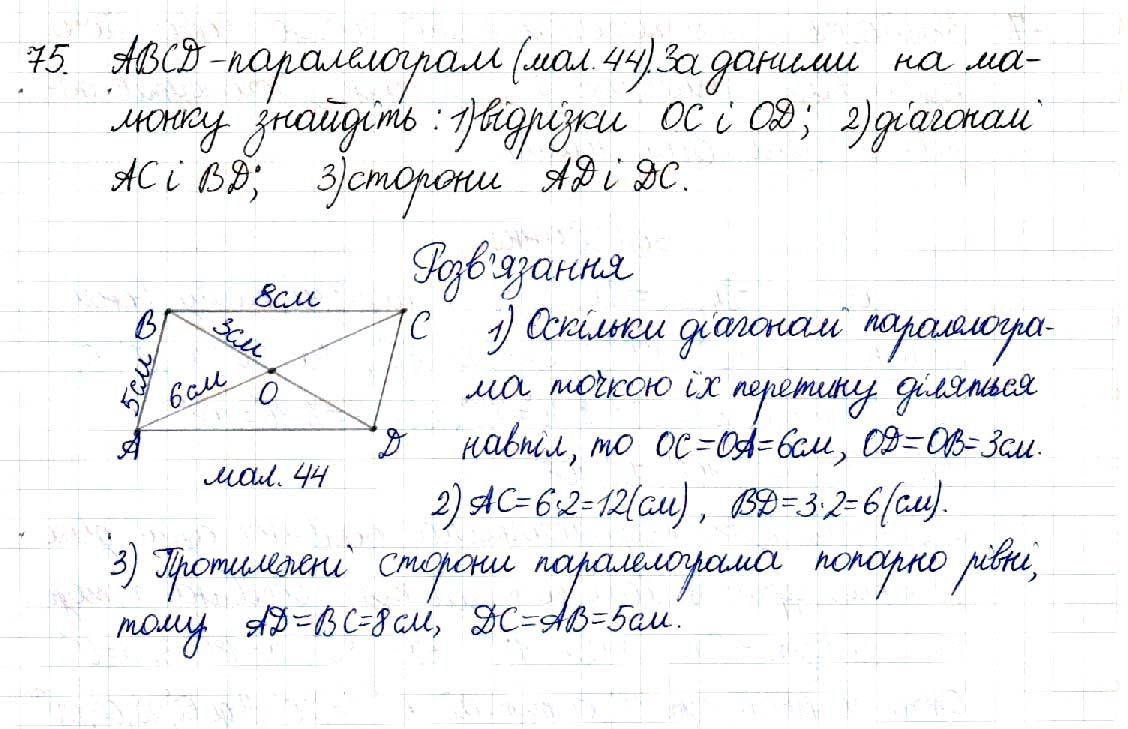 75. ABCD - паралелограм (мал. 44). За даними на ма-
люнку знайдіть : 1) відрізки OC і OD; 2) діагоналі
AC і BD; 3) сторони AD і DC.
Розв'язання
8см
B
3см
C
5см
6см
O
A
D
мал. 44
1) Оскільки діагоналі паралелогра-
ма точкою їх перетину діляться
навпіл, то OC=OA=6см, OD=OB=3см.
2) AC=6·2=12(см), BD=3·2=6(см).
3) Протилежні сторони паралелограма попарно рівні,
тому AD=BC=8см, DC=AB=5см.